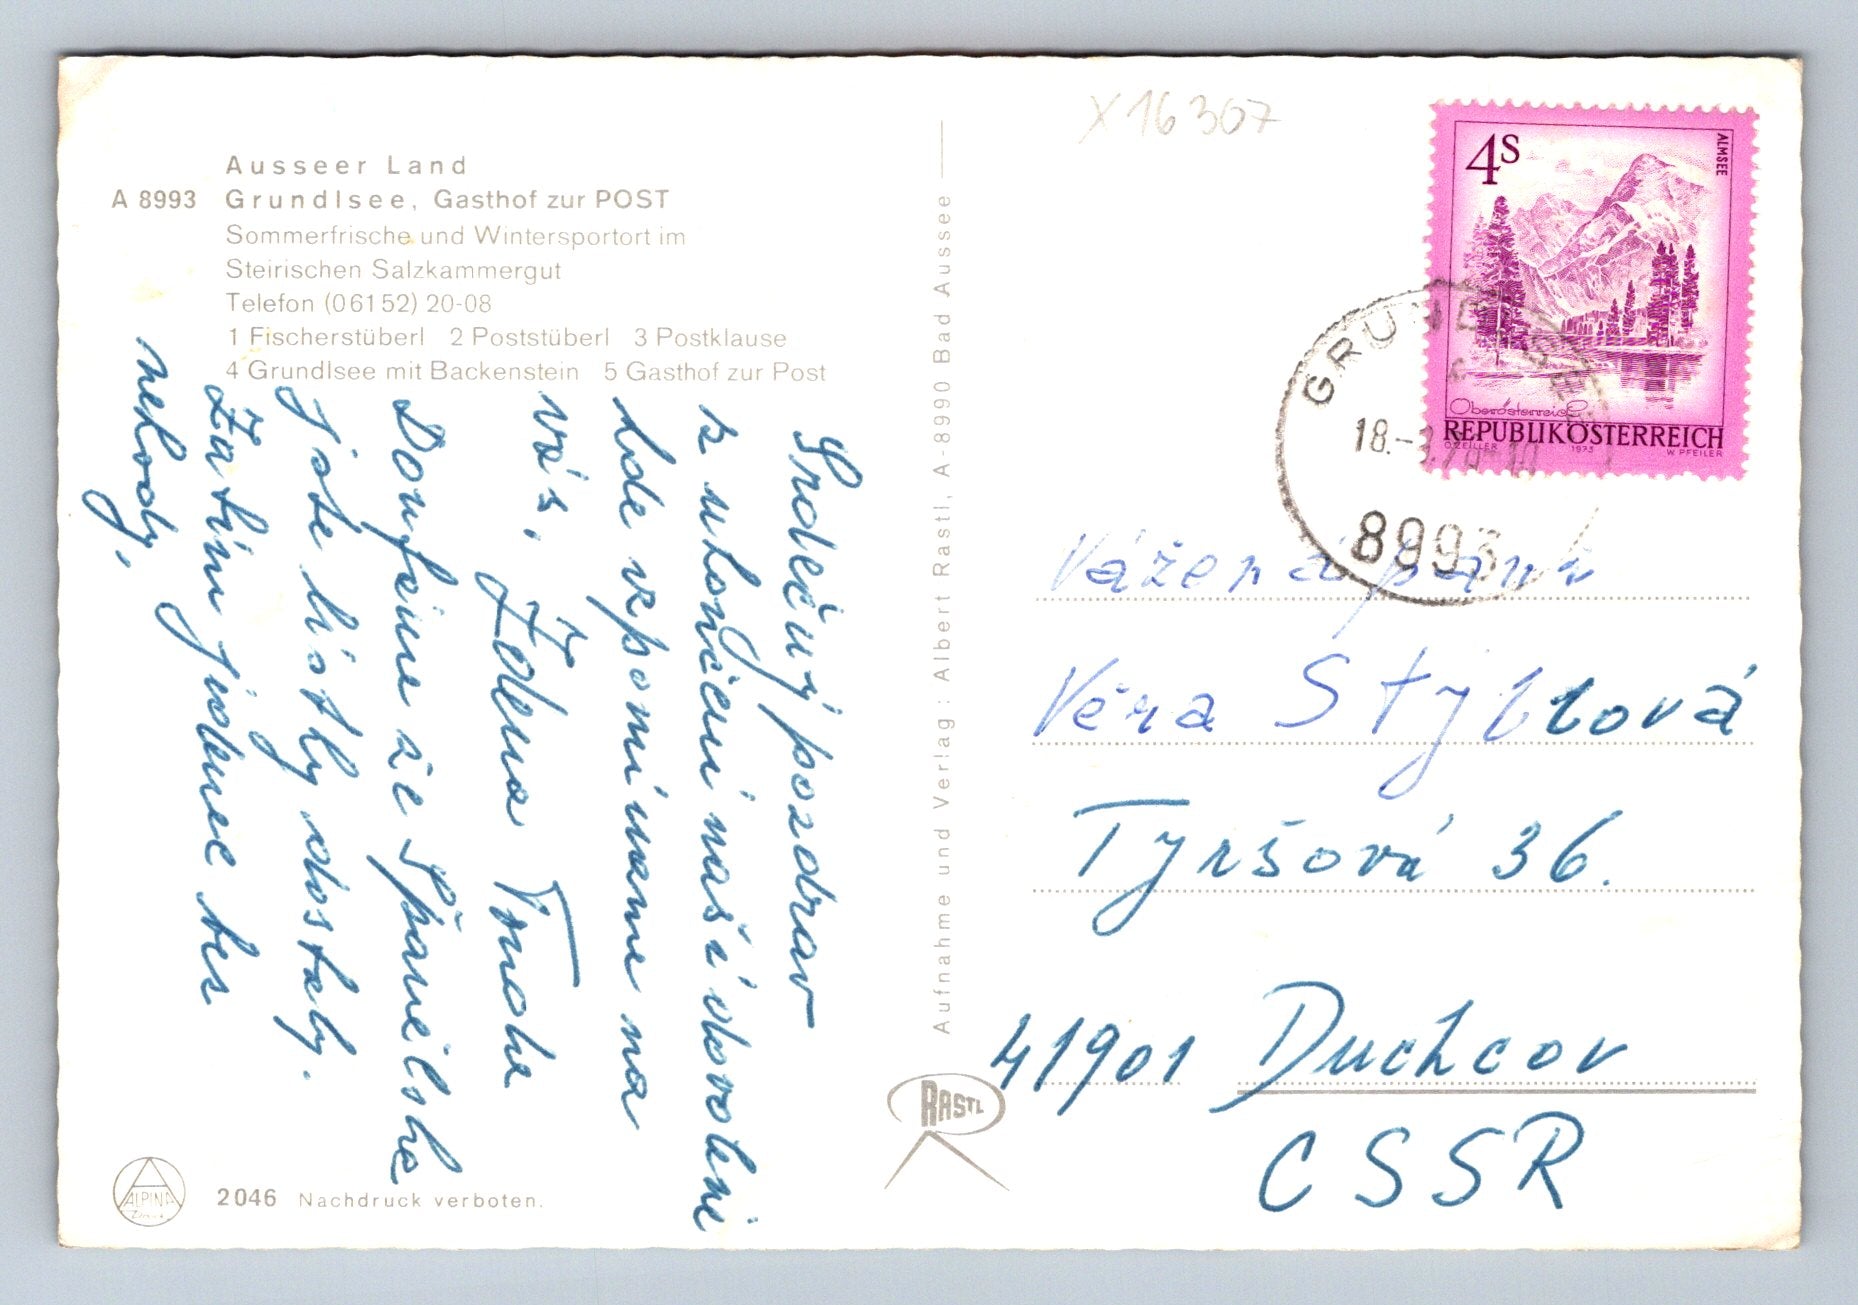 Ausseer Land
A 8993 Grundlsee, Gasthof zur POST
Sommerfrische und Wintersportort im
Steirischen Salzkammergut
Telefon (06152) 20-08
1 Fischerstüberl 2 Poststüberl 3 Postklause
4 Grundlsee mit Backenstein 5 Gasthof zur Post
Srdečný pozdrav
k ukončení naší dovolené
kde vzpomínáme na
vás. Zdena
Doufáme že Španělska
jste lístky dostaly.
Zatím jedeme bez
nehody.
2046 Nachdruck verboten.
ALPINA
Aufnahme und Verlag: Albert Rastl, A-8990 Bad Aussee
RASTL
X16307
4S
ALMSEE
Oberösterreich
REPUBLIK ÖSTERREICH
O. ZEILLER 1973 W. PFEILER
GRUNDLSEE
8993
Vážená paní
Věra Stýblová
Tyršová 36.
41901 Duchcov
CSSR